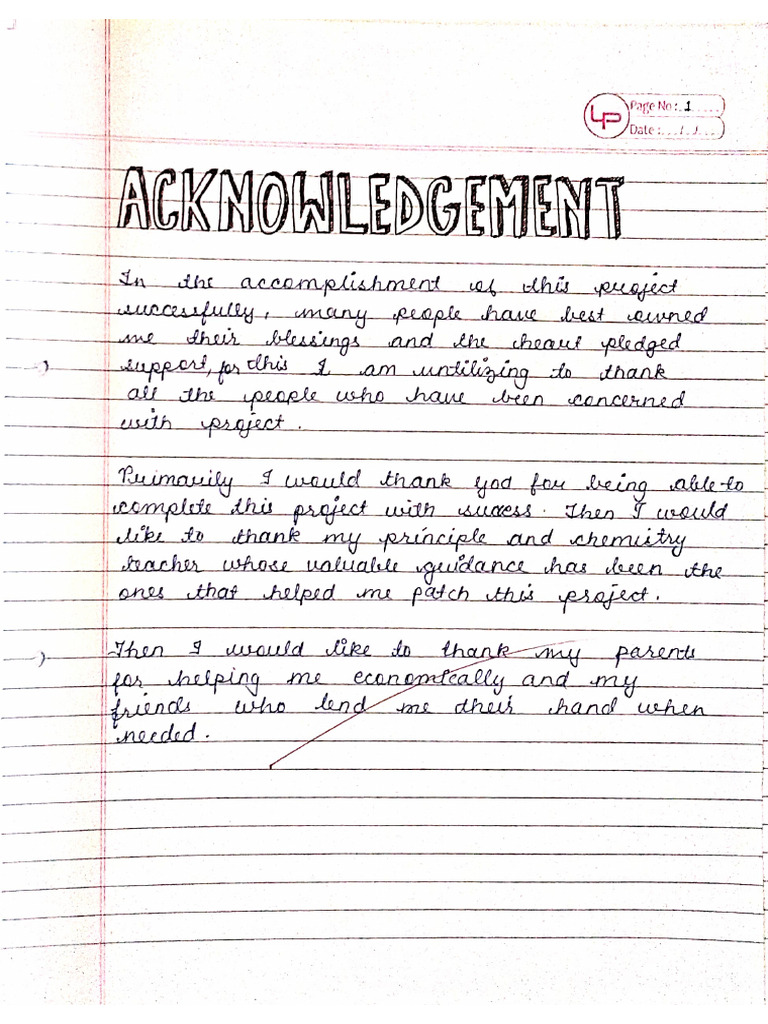 LP
Page No: 1
Date: / /
ACKNOWLEDGEMENT
In the accomplishment of this project
successfully, many people have best owned
me their blessings and the heart pledged
support, for this I am untilizing to thank
all the people who have been concerned
with project.
Primarily I would thank god for being able to
complete this project with success. Then I would
like to thank my principle and chemistry
teacher whose valuable guidance has been the
ones that helped me patch this project.
Then I would like to thank my parents
for helping me economically and my
friends who lend me their hand when
needed.